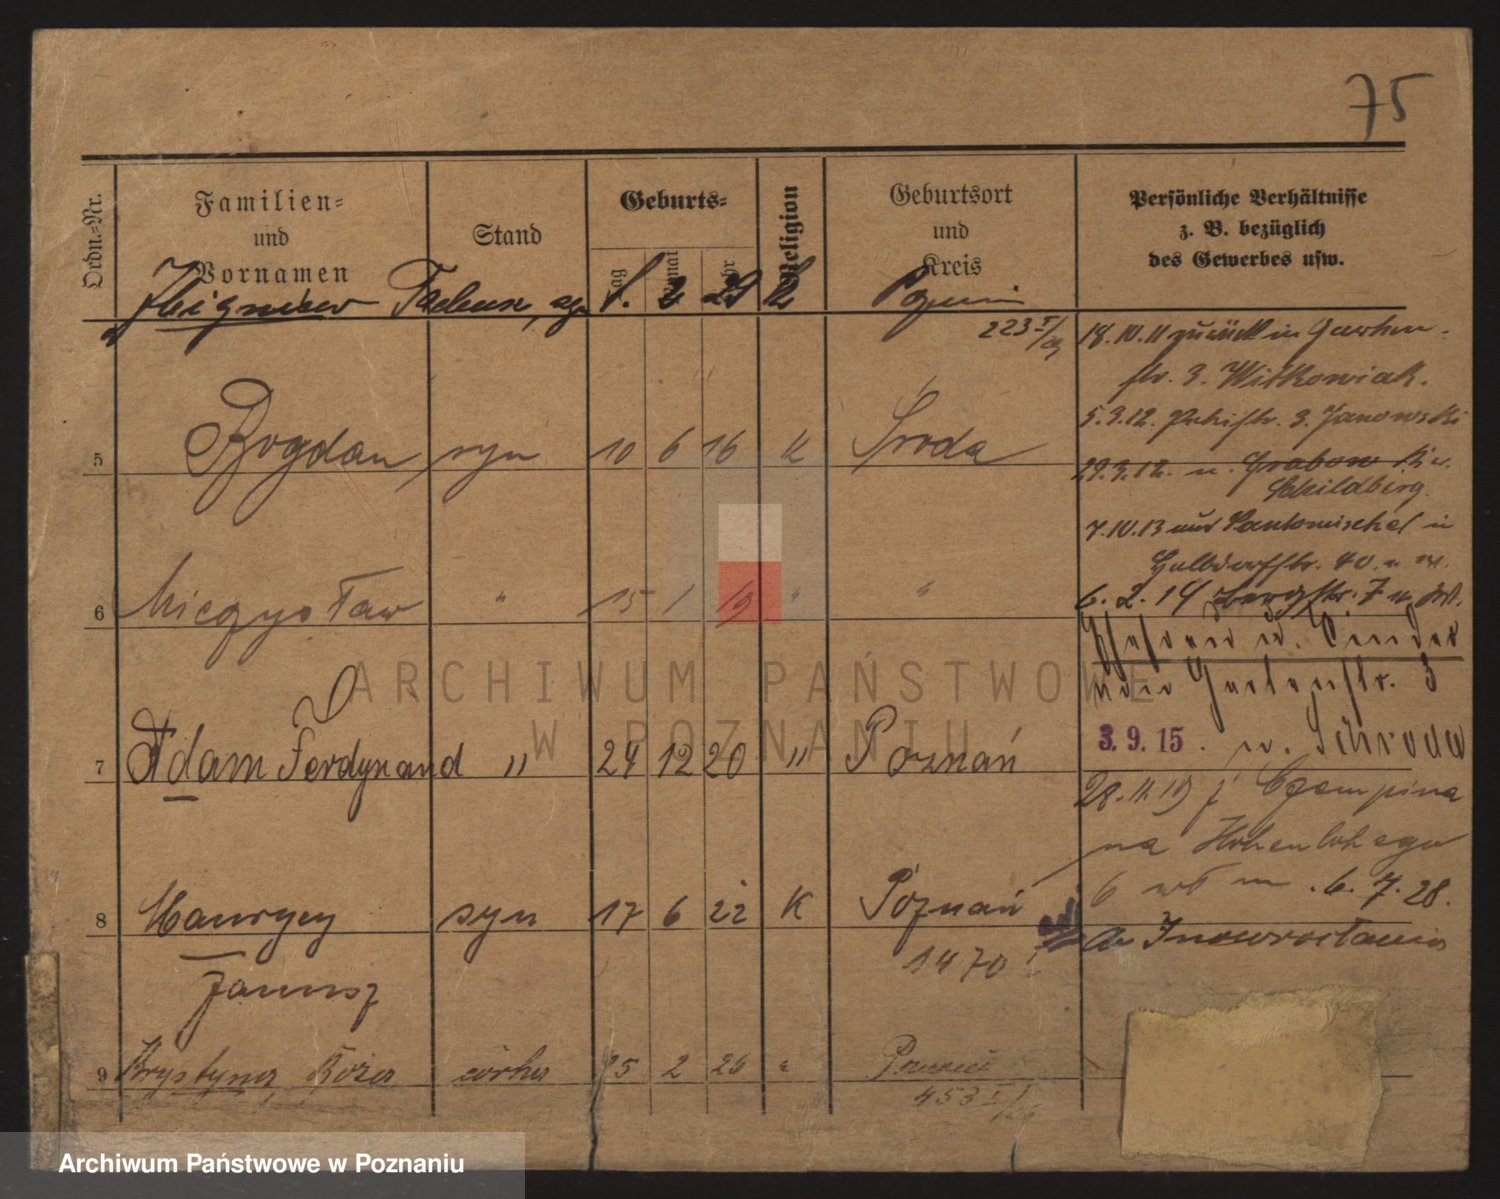 75
Ordn.-Nr.
Familien-
und
Vornamen
Stand
Geburts-
Tag
Monat
Jahr
Religion
Geburtsort
und
Kreis
Persönliche Verhältnisse
z. B. bezüglich
des Gewerbes usw.
Zbigniew
18.10.11 zurück in Garten-
str. 3. Witkowiak.
5.3.12. 3. Janowski
5 Bogdan syn 10 6 16 K Środa
29.3.12. n. Grabow Kr.
Schildberg.
7.10.13 aus Santomischel in
Halbdorfstr. 40.
6 Mieczysław " 15 1 19 " "
6.2.14 Bergstr. 7
Gartenstr. 3
7 Adam Ferdynand " 24 12 20 " Poznań
3.9.15. n. Schroda
28.11.19 z
na Hohenlohego
8 Maurycy syn 17 6 22 K Poznań
6 6.7.28.
Janusz
1470
do Inowrocławia
9 Krystyna, Róża córka 25 2 26 " Poznań
453 I/26
ARCHIWUM PAŃSTWOWE
W POZNANIU
Archiwum Państwowe w Poznaniu